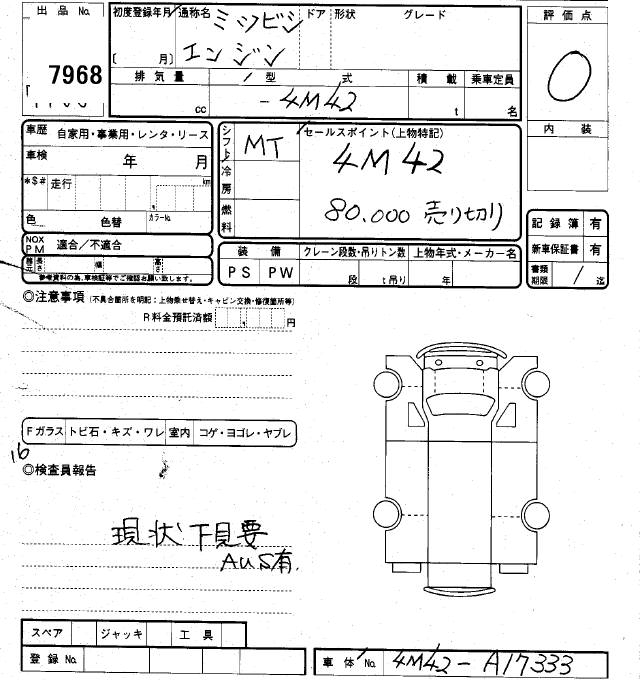 出品No. 初度登録年月 通称名 ミツビシ ドア 形状 グレード 評価点
7968 〔 月〕 エンジン 0
排気量 型式 積載 乗車定員
cc -4M42 t 名
内装
車歴 自家用・事業用・レンタ・リース シフト MT セールスポイント(上物特記)
車検 年 月 4M42
*$# 走行 km 冷房
80.000 売り切り
色 色替 カラーNo. 燃料
記録簿 有
NOX PM 適合/不適合 装備 クレーン段数・吊りトン数 上物年式・メーカー名 新車保証書 有
長さ 幅 高さ PS PW 段 t吊り 年 書類期限 / 迄
参考資料の為、車検証等でご確認お願い致します。
◎注意事項 (不具合箇所を明記:上物乗せ替え・キャビン交換・修復箇所等)
R料金預託済額 円
Fガラス トビ石・キズ・ワレ 室内 コゲ・ヨゴレ・ヤブレ
16
◎検査員報告
現状下見要
AUS有.
スペア ジャッキ 工具
登録No. 車体No. 4M42-A17333